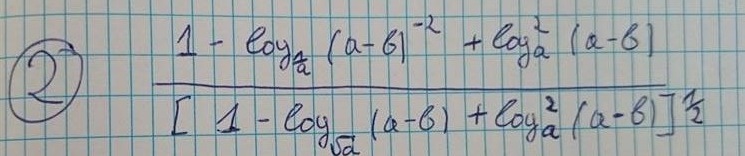 2
1 - log_{1/a} (a-b)^{-2} + log_a^2 (a-b)
[ 1 - log_{√a} (a-b) + log_a^2 (a-b) ]^{1/2}